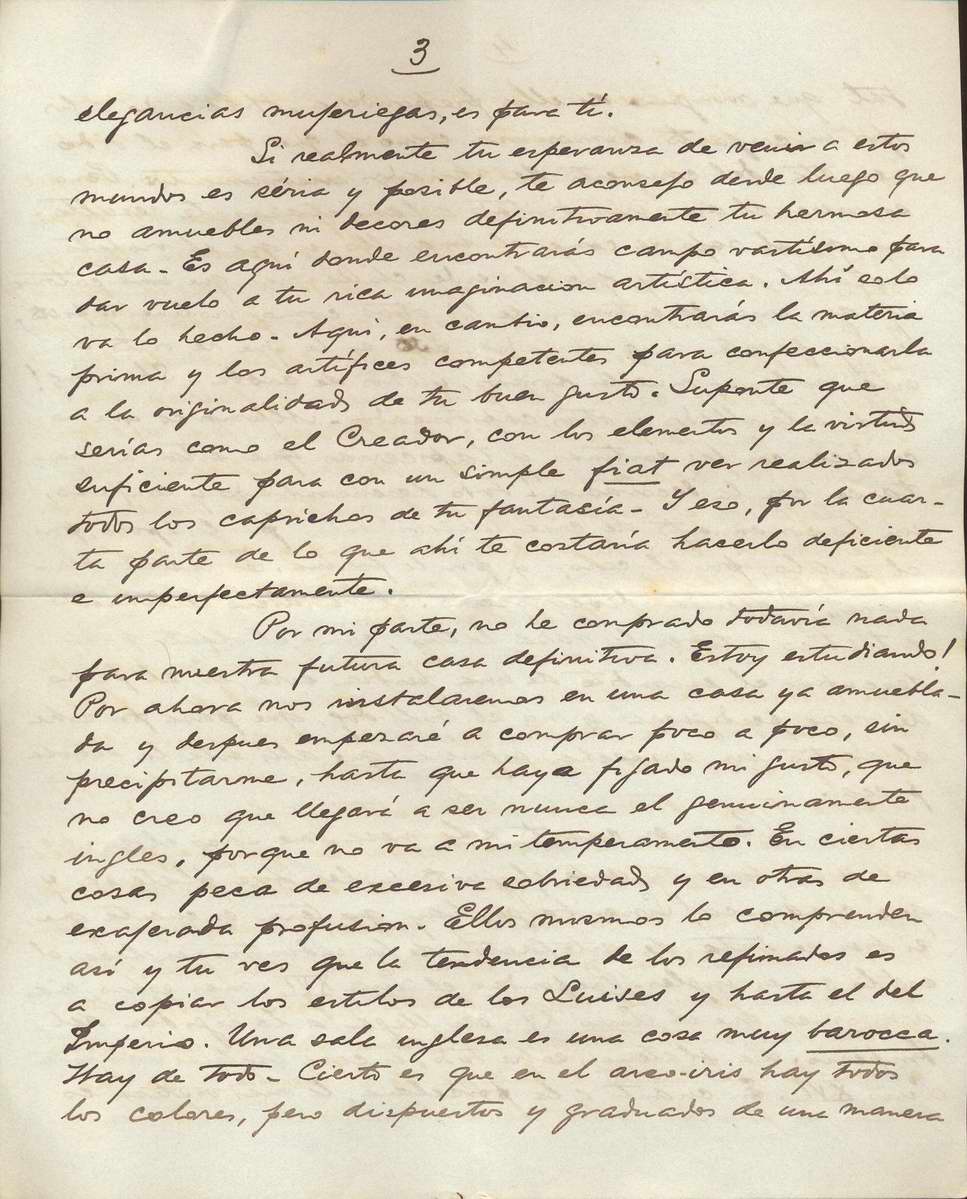 3
elegancias mujeriegas, es para tí.
Si realmente tu esperanza de venir a estos
mundos es séria y posible, te aconsejo desde luego que
no amuebles ni decores definitivamente tu hermosa
casa - Es aquí donde encontrarás campo vastísimo para
dar vuelo a tu rica imaginacion artística. Ahí solo
va lo hecho - Aquí, en cambio, encontrarás la materia
prima y los artífices competentes para confeccionarla
a la originalidad de tu buen gusto. Suponte que
serías como el Creador, con los elementos y la virtud
suficiente para con un simple fiat ver realizados
todos los caprichos de tu fantasía - Y eso, por la cuar-
ta parte de lo que ahí te costaría hacerlo deficiente
e imperfectamente.
Por mi parte, no he comprado todavía nada
para nuestra futura casa definitiva. Estoy estudiando!
Por ahora nos instalaremos en una casa ya amuebla-
da y despues empezaré a comprar poco a poco, sin
precipitarme, hasta que haya fijado mi gusto, que
no creo que llegará a ser nunca el genuinamente
ingles, porque no va a mi temperamento. En ciertas
cosas peca de excesiva sobriedad y en otras de
exajerada profusion. Ellos mismos lo comprenden
así y tu ves que la tendencia de los refinados es
a copiar los estilos de los Luises y hasta el del
Imperio. Una sala inglesa es una cosa muy barocca.
Hay de todo - Cierto es que en el arco-iris hay todos
los colores, pero dispuestos y graduados de una manera